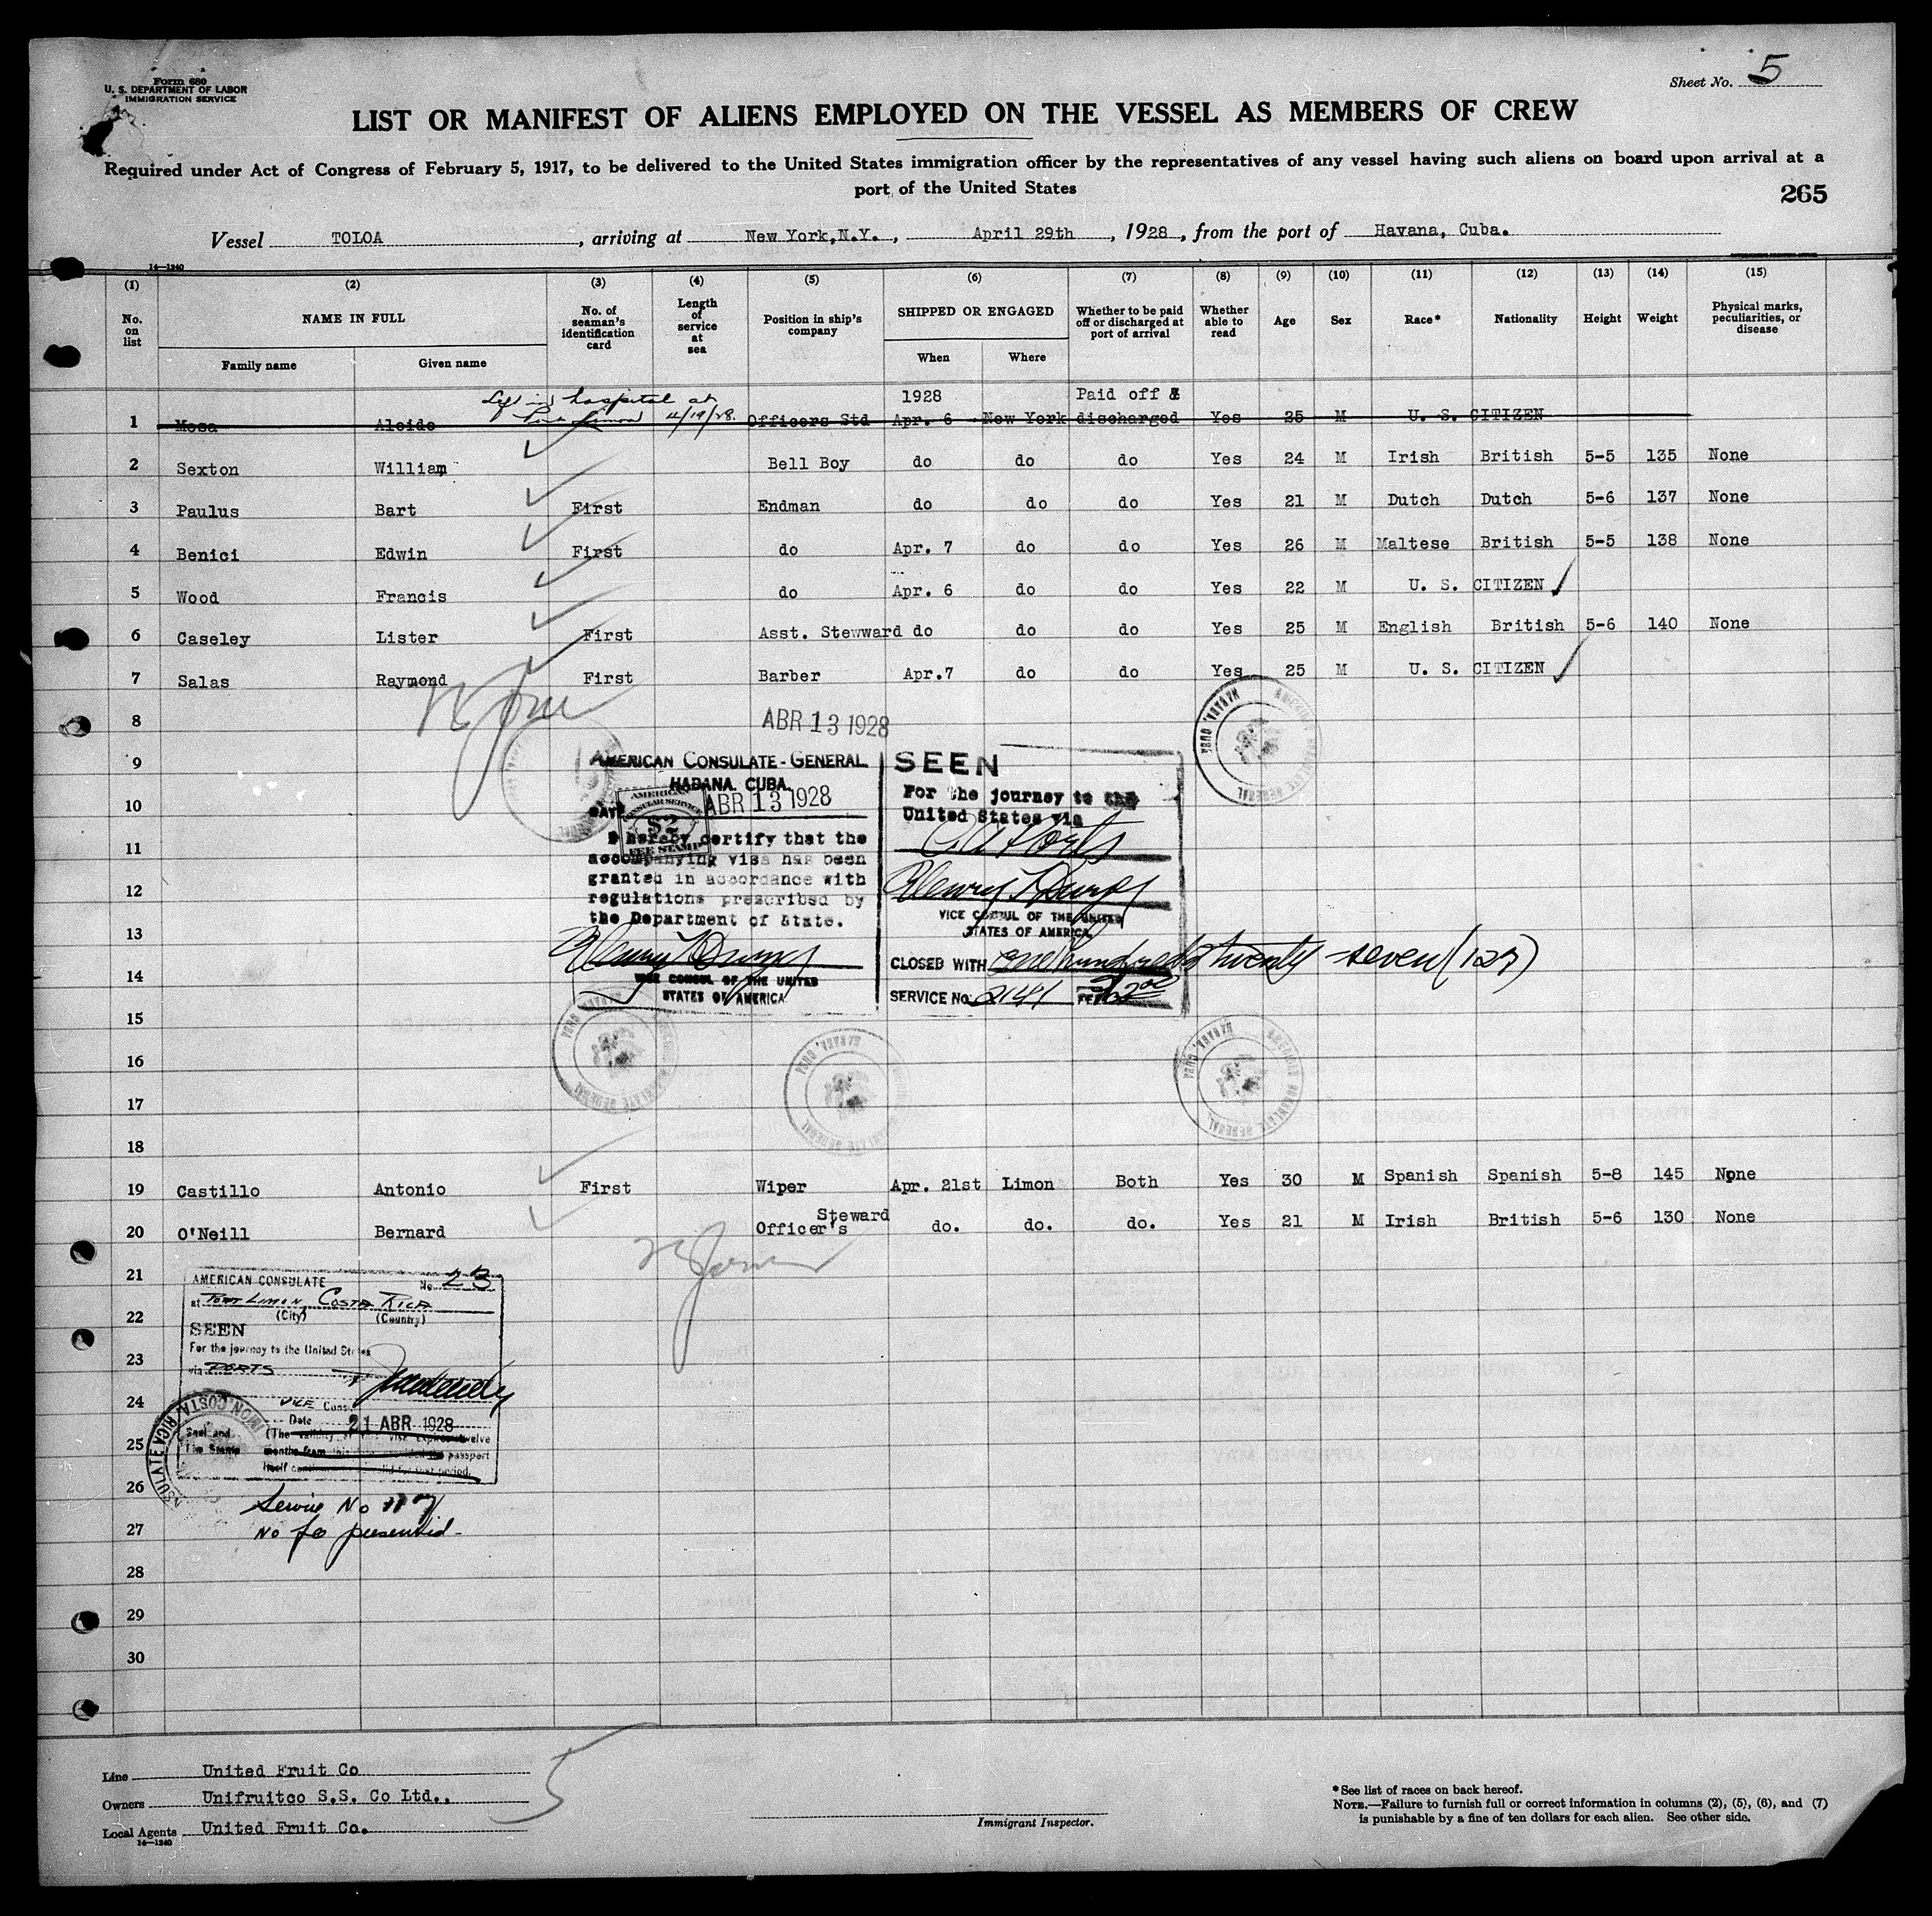 Form 680
U. S. DEPARTMENT OF LABOR
IMMIGRATION SERVICE
Sheet No. 5
LIST OR MANIFEST OF ALIENS EMPLOYED ON THE VESSEL AS MEMBERS OF CREW
Required under Act of Congress of February 5, 1917, to be delivered to the United States immigration officer by the representatives of any vessel having such aliens on board upon arrival at a
port of the United States
265
Vessel TOLOA, arriving at New York,N.Y., April 29th, 1928, from the port of Havana, Cuba.
14—1240
(1) (2) (3) (4) (5) (6) (7) (8) (9) (10) (11) (12) (13) (14) (15)
No. on list NAME IN FULL No. of seaman's identification card Length of service at sea Position in ship's company SHIPPED OR ENGAGED Whether to be paid off or discharged at port of arrival Whether able to read Age Sex Race* Nationality Height Weight Physical marks, peculiarities, or disease
Family name Given name When Where
Left in hospital at 1928 Paid off &
Port Limon 4/19/28.
1 Mosa Alcide Officers Std Apr. 6 New York discharged Yes 25 M U. S. CITIZEN
2 Sexton William Bell Boy do do do Yes 24 M Irish British 5-5 135 None
3 Paulus Bart First Endman do do do Yes 21 M Dutch Dutch 5-6 137 None
4 Benici Edwin First do Apr. 7 do do Yes 26 M Maltese British 5-5 138 None
5 Wood Francis do Apr. 6 do do Yes 22 M U. S. CITIZEN
6 Caseley Lister First Asst. Stewward do do do Yes 25 M English British 5-6 140 None
7 Salas Raymond First Barber Apr.7 do do Yes 25 M U. S. CITIZEN
8
ABR 13 1928
9
AMERICAN CONSULATE-GENERAL
HABANA. CUBA.
10
DATE ABR 13 1928
AMERICAN
CONSULAR SERVICE
$2
FEE STAMP
I hereby certify that the
accompanying visa has been
granted in accordance with
regulations prescribed by
the Department of State.
VICE CONSUL OF THE UNITED
STATES OF AMERICA
SEEN
For the journey to the
United States via
VICE CONSUL OF THE UNITED
STATES OF AMERICA
CLOSED WITH one hundred & twenty-seven (127)
SERVICE No. 2141 FEE $2.00
HABANA, CUBA
11
12
13
14
15
16
17
18
19 Castillo Antonio First Wiper Apr. 21st Limon Both Yes 30 M Spanish Spanish 5-8 145 None
Steward
20 O'Neill Bernard Officer's do. do. do. Yes 21 M Irish British 5-6 130 None
21
AMERICAN CONSULATE No. 23
at Port Limon, Costa Rica
(City) (Country)
22
SEEN
For the journey to the United States
23
via PORTS
24
Vice Consul
Date 21 ABR 1928
Seal and Fee Stamp
(The validity of this visa expires twelve
months from this date provided the passport
itself continues valid for that period.
25
26
Service No 117
27
No fee presented-
28
29
30
Line United Fruit Co
Owners Unifruitco S.S. Co Ltd.,
Local Agents United Fruit Co.
14—1240
5
Immigrant Inspector.
*See list of races on back hereof.
NOTE.—Failure to furnish full or correct information in columns (2), (5), (6), and (7)
is punishable by a fine of ten dollars for each alien. See other side.